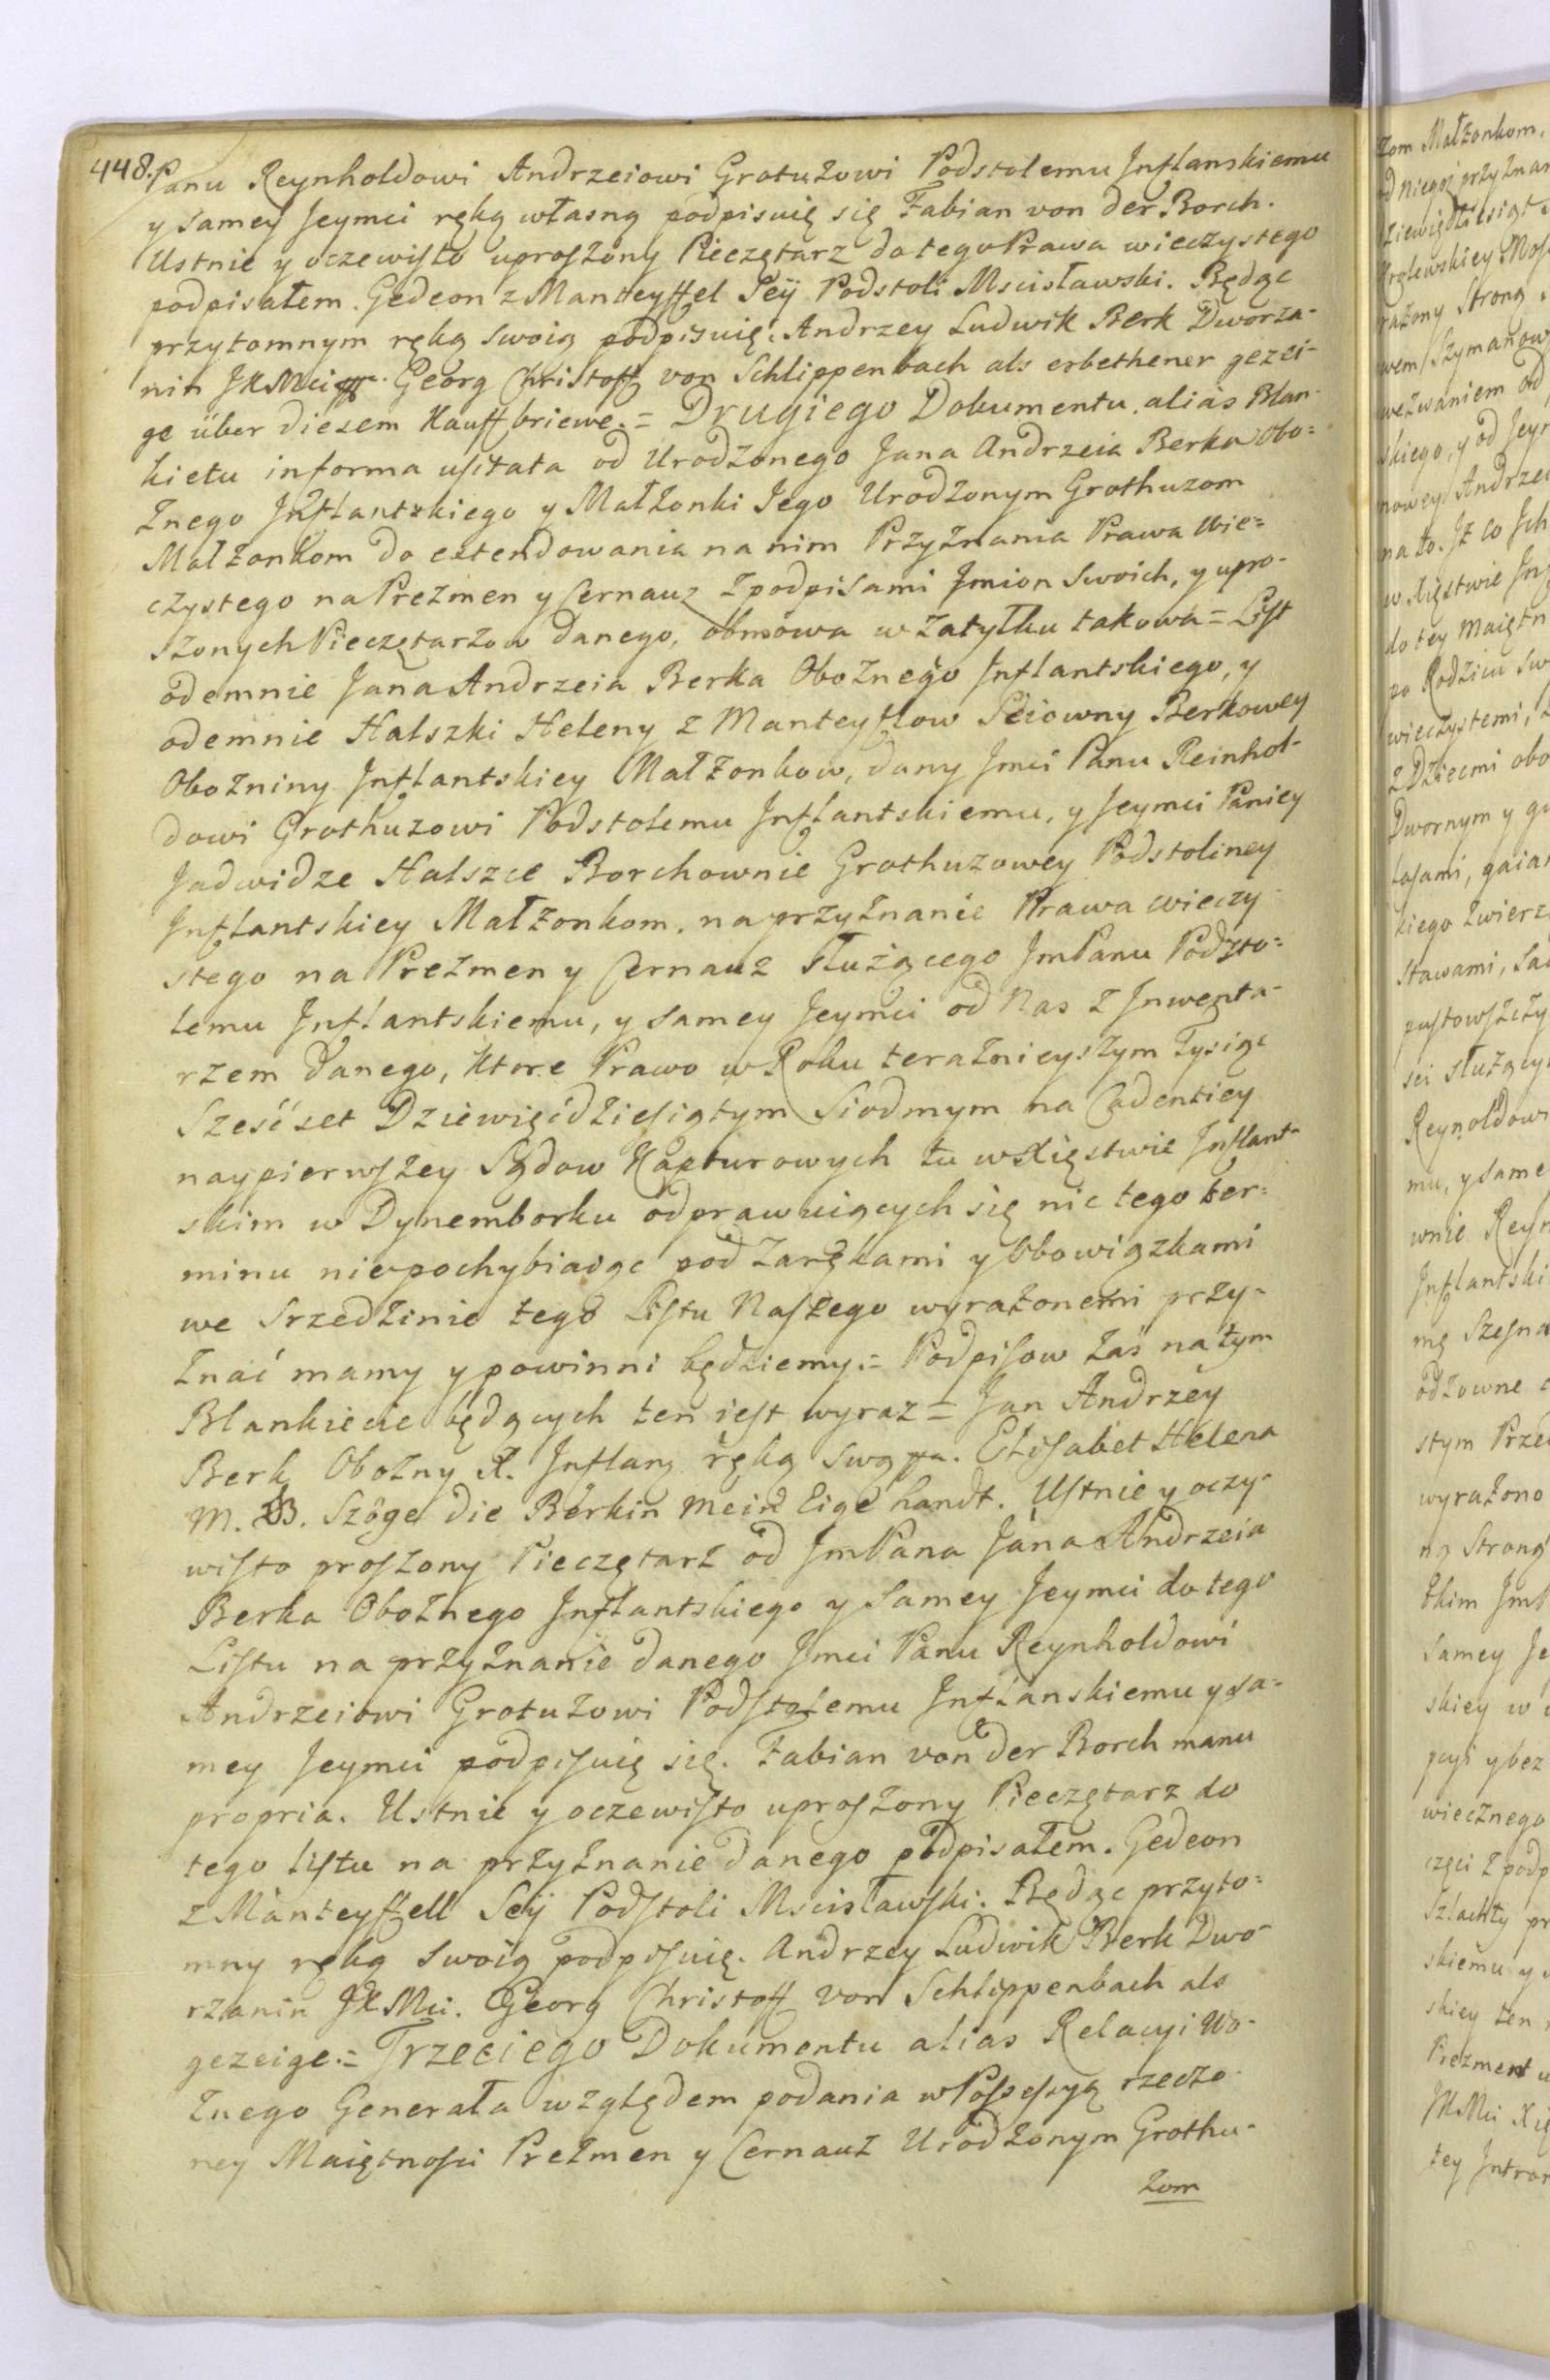 448. Panu Reynholdowi Andrzeiowi Grotuzowi Podstolemu Inflanskiemu
y samey Jeymci ręką własną podpisuię się Fabian von der Borch.
Ustnie y oczewisto uproszony Pieczętarz do tego Prawa wieczystego
podpisałem. Gedeon z Manteyffel Sey Podstoli Mscisławski. Będąc
przytomnym ręką swoią podpisuię. Andrzey Ludwik Berk Dworza-
nin JKMci Georg Christoff von Schlippenbach als erbethener gezei-
ge über diesem Kauffbriewe. = Drugiego Dokumentu, alias Blan-
kietu in forma usitata od Urodzonego Jana Andrzeia Berka Obo=
znego Inflantskiego y Małżonki Jego Urodzonym Grothuzom
Małżonkom do extendowania na nim Przyznania Prawa Wie=
czystego na Prezmen y Cernauz z podpisami Imion Swoich, y upro-
szonych Pieczętarzow danego, obmowa w zatyłku takowa = List
odemnie Jana Andrzeia Berka Oboznego Inflantskiego, y
odemnie Halszki Heleny z Manteyflow Seiowny Berkowey
Obozniny Inflantskiey Małżonkow, dany Jmci Panu Reinhol-
dowi Grothuzowi Podstolemu Inflantskiemu, y Jeymci Paniey
Jadwidze Halszce Borchownie Grothuzowey Podstoliney
Inflantskiey Małżonkom. na przyznanie Prawa wieczy-
stego na Prezmen y Cernauz służącego ImPanu Podsto=
lemu Inflantskiemu, y samey Jeymci od Nas z Inwenta-
rzem danego, ktore Prawo w Roku teraznieyszym Tysiąc
Sześćset Dziewięćdziesiątym Siodmym na Cadentiey
naypierwszey Sądow Kapturowych tu w Xięstwie Inflant-
skim w Dynemborku odprawuiących się nic tego ter=
minu niepochybiaiąc pod zarękami y obowiązkami
we Srzedzinie tego Listu Naszego wyrazonemi przy-
znać mamy y powinni będziemy. = Podpisow zas na tym
Blankiecie będących ten iest wyraz = Jan Andrzey
Berk Obozny X. Inflan. ręką swą. Elisabet Helena
M. B. Szöge die Berkin mein Eige handt. Ustnie y oczy-
wisto proszony Pieczętarz od ImPana Jana Andrzeia
Berka Oboznego Inflantskiego y Samey Jeymci do tego
Listu na przyznanie danego Jmci Panu Reynholdowi
Andrzeiowi Grotuzowi Podstolemu Inflanskiemu y sa-
mey Jeymci podpisuię się. Fabian von der Borch manu
propria. Ustnie y oczewisto uproszony Pieczętarz do
tego listu na przyznanie danego podpisałem. Gedeon
z Manteyffell Sey Podstoli Mscisławski. Będąc przyto=
mny ręką swoią podpisuię. Andrzey Ludwik Berk Dwo-
rzanin JKMci. Georg Christoff von Schlippenbach als
gezeige. = Trzeciego Dokumentu alias Relacyi Wo-
znego Generała względem podania w Possessyą rzeczo-
ney Maiętnosci Prezmen y Cernauz Urodzonym Grothu-
zom
zom Małżonkom,
Reynoldow
mu, y same
wnie Reyn
Inflantski
stym Prze
wyrażono
ną Strong
samey Je
skiey w
wiecznego
Szlachty pr
skiemu y
skiey ten
Prezment
JKMci Xię
tey Intro